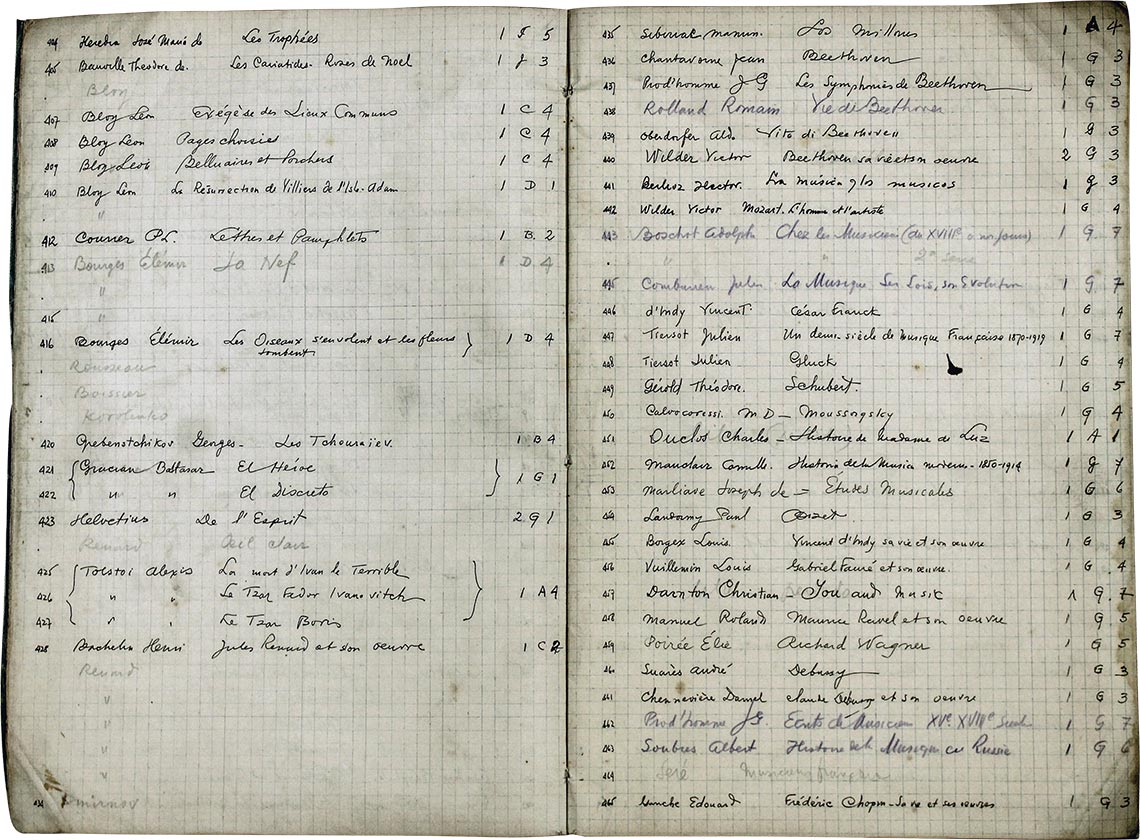 404 Heredia José Maria de Les Trophées 1 F 5
405 Banville Théodore de. Les Cariatides - Roses de Noel 1 J 3
Bloy
407 Bloy Léon Exégèse des Lieux Communs 1 C 4
408 Bloy Leon Pages choisies 1 C 4
409 Bloy Leon Belluaires et Porchers 1 C 4
410 Bloy Léon La Résurrection de Villiers de l'Isle-Adam 1 D 1
"
412 Courier P.L. Lettres et Pamphlets 1 B. 2
413 Bourges Élémir La Nef 1 D 4
"
415 "
416 Bourges Élémir Les Oiseaux s'envolent et les fleurs tombent } 1 D 4
Rousseau
Boissier
Korolenko
420 Grebenstchikov Georges - Les Tchouraïev. 1 B 4
421 { Gracian Baltasar El Héroe } 1 G 1
422 " " El Discreto
423 Helvetius De l'Esprit 2 G 1
Renard Œil clair
425 { Tolstoi Alexis La mort d'Ivan le Terrible
426 " " Le Tzar Fedor Ivanovitch } 1 A 4
427 " " Le Tzar Boris
428 Bachelin Henri Jules Renard et son oeuvre 1 C 2
Renard
"
"
"
"
434 Smirnov
435 1 A 4
436 Chantavoine Jean Beethoven 1 G 3
437 Prod'homme J G Les Symphonies de Beethoven 1 G 3
438 Rolland Romain Vie de Beethoven 1 G 3
439 Oberdorfer Aldo Vita di Beethoven 1 G 3
440 Wilder Victor Beethoven sa vie et son oeuvre 2 G 3
441 Berlioz Hector. La música y los musicos 1 G 3
442 Wilder Victor Mozart. L'homme et l'artiste 1 G 4
443 Boschot Adolphe Chez les Musiciens (du XVIIIe a nos jours) 1 G 7
" " 2a serie
445 Combarieu Jules La Musique Ses Lois, son Evolution 1 G 7
446 d'Indy Vincent. César Franck 1 G 4
447 Tiersot Julien Un demi-siècle de musique Française 1870-1919 1 G 7
448 Tiersot Julien Gluck 1 G 4
449 Gérold Théodore. Schubert. 1 G 5
450 Calvocoressi. M D - Moussorgsky 1 G 4
451 Duclos Charles - Histoire de Madame de Luz 1 A 1
452 Mauclair Camille. Historia de la Musica moderna - 1850-1914 1 G 7
453 Marliave Joseph de = Études Musicales 1 G 6
454 Landormy Paul Bizet. 1 G 3
455 Borgex Louis. Vincent d'Indy sa vie et son œuvre 1 G 4
456 Vuillemin Louis Gabriel Fauré et son œuvre. 1 G 4
457 Darnton Christian - You and Music 1 G. 7
458 Manuel Roland Maurice Ravel et son oeuvre 1 G 5
459 Poirée Élie Richard Wagner 1 G 5
460 Suarès André Debussy 1 G 3
461 Chennevière Daniel Claude Debussy et son oeuvre 1 G 3
462 Prod'homme JG Ecrits de Musiciens XVe XVIIIe Siècle 1 G 7
463 Soubies Albert Histoire de la Musique en Russie 1 G 6
464 Seré Musiciens français
465 Ganche Edouard Frédéric Chopin - Sa vie et ses œuvres 1 G 3